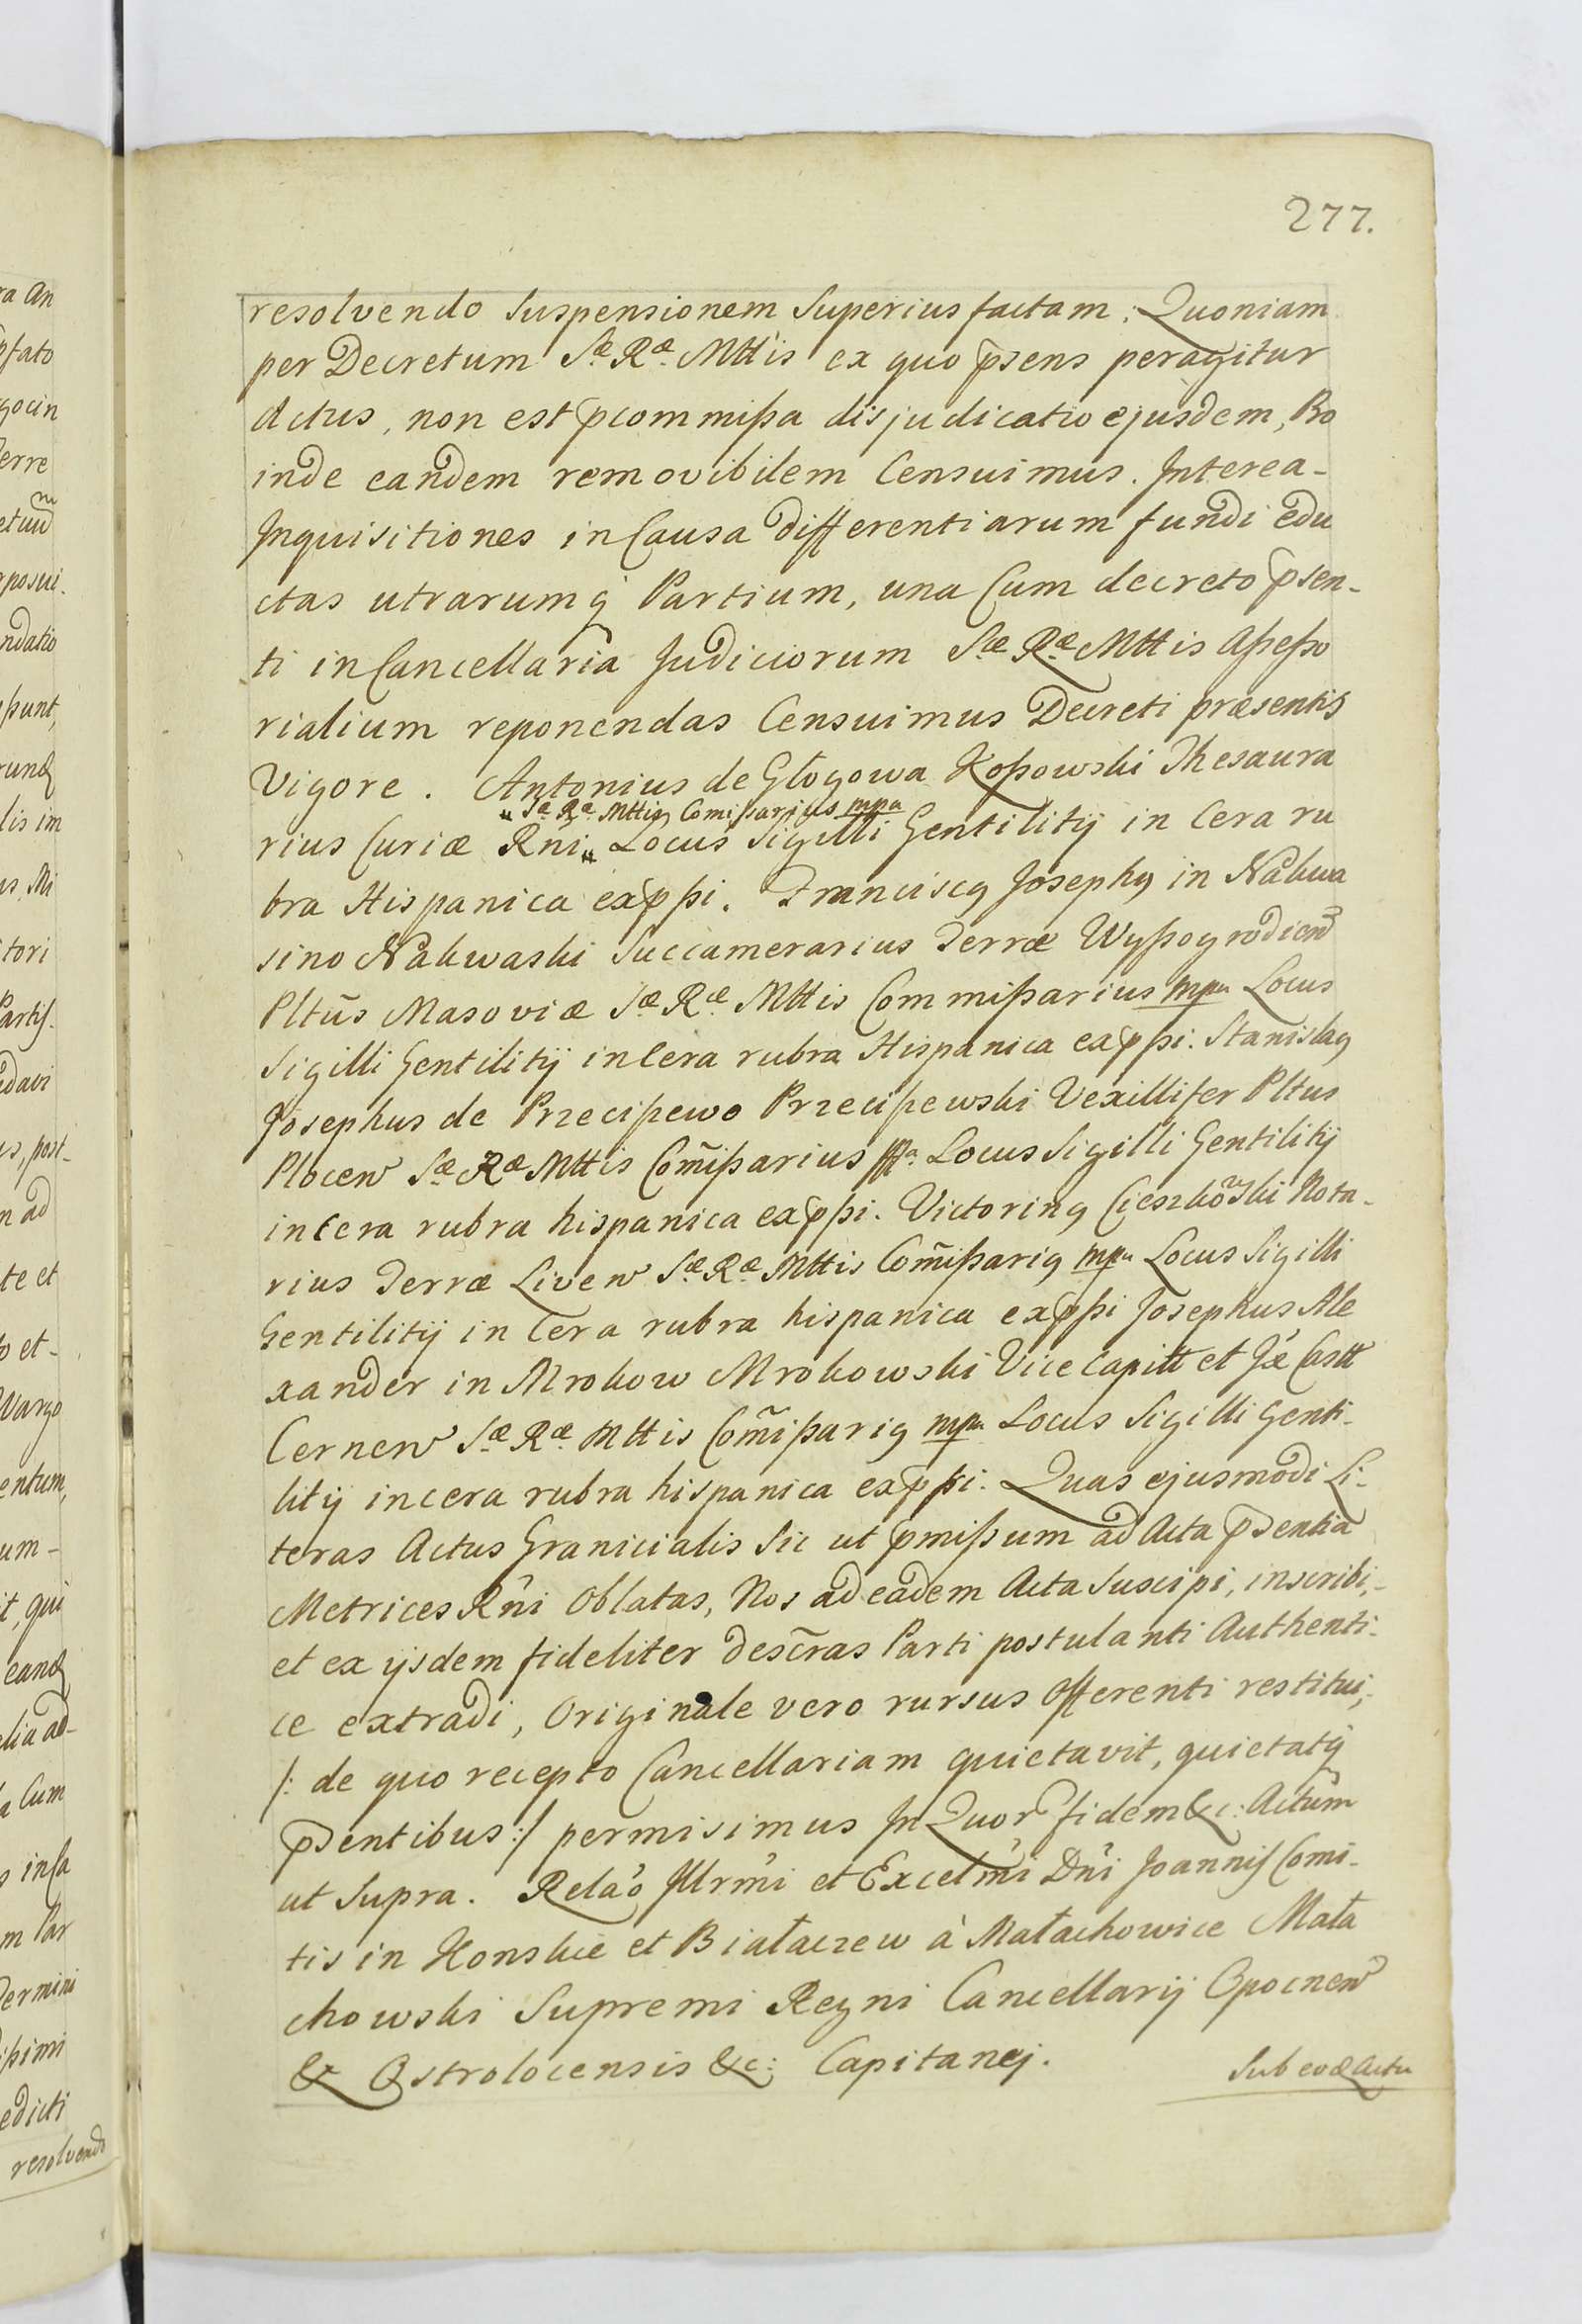 277.
resolvendo Suspensionem Superius factam: Quoniam
per Decretum Sæ Ræ Mttis ex quo p̄sens peragitur
Actus, non est p̄commißa disjudicatio ejusdem, Pro
inde eandem removibilem Censuimus. Interea-
Inquisitiones in Causa differentiarum fundi edu
ctas utrarumq Partium, una Cum decreto p̄sen-
ti in Cancellaria Judiciorum Sæ Ræ Mttis Aßeßo
rialium reponendas Censuimus Decreti præsentis
Vigore. Antonius de Głogowa Koßowski Thesaura
„Sæ Ræ Mttis Comißarius mpa
rius Curiæ Rni„ Locus Sigilli Gentilitij in Cera ru
bra Hispanica exp̄ßi. Franciscq Josephq in Nakwa
sino Nakwaski Succamerarius Terræ Wyßogrodien
Pltus Masoviæ Sæ Ræ Mttis Commißarius mpa Locus
Sigilli Gentilitij in Cera rubra Hispanica exp̄ßi. Stanislaq
Josephus de Przecißewo Przecißewski Vexillifer Pltus
Plocen Sæ Ræ Mttis Com̃ißarius mpa Locus Sigilli Gentilitij
in Cera rubra hispanica exp̄ßi. Victorinq Cieszkowski Nota-
rius Terræ Liven Sæ Ræ Mttis Com̃ißariq mpa Locus Sigilli
Gentilitij in Cera rubra hispanica exp̄ßi Josephus Ale
xander in Mrokow Mrokowski Vice Capitt et Jæ Castt
Cernen Sæ Ræ Mttis Com̃ißariq mpa Locus Sigilli Genti-
litij in cera rubra hispanica exp̄ßi. Quas ejusmodi Li-
teras Actus Granicialis Sic ut p̄mißum ad Acta p̄sentia
Metrices Rni Oblatas, Nos ad eadem Acta Suscipi, inscribi,-
et ex ijsdem fideliter descr̃as Parti postulanti Authenti-
ce extradi, Originale vero rursus Offerenti restitui,-
/: de quo recepto Cancellariam quietavit, quietatq
p̄sentibus:/ permisimus In Quor fidem &c: Actum
ut Supra. Relao Illrmi et Excelmi Dni Joannis Comi-
tis in Konskie et Białaczew à Małachowice Mała
chowski Supremi Regni Cancellarij Opocnen
& Ostrolocensis &c: Capitanej.
Sub eod Actu